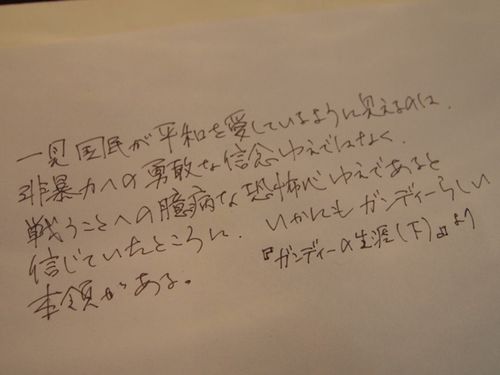 一見国民が平和を愛しているように見えるのは、
非暴力への勇敢な信念ゆえではなく、
戦うことへの臆病な恐怖心ゆえであると
信じていたところに、いかにもガンディーらしい
本領がある。
『ガンディーの生涯(下)』より